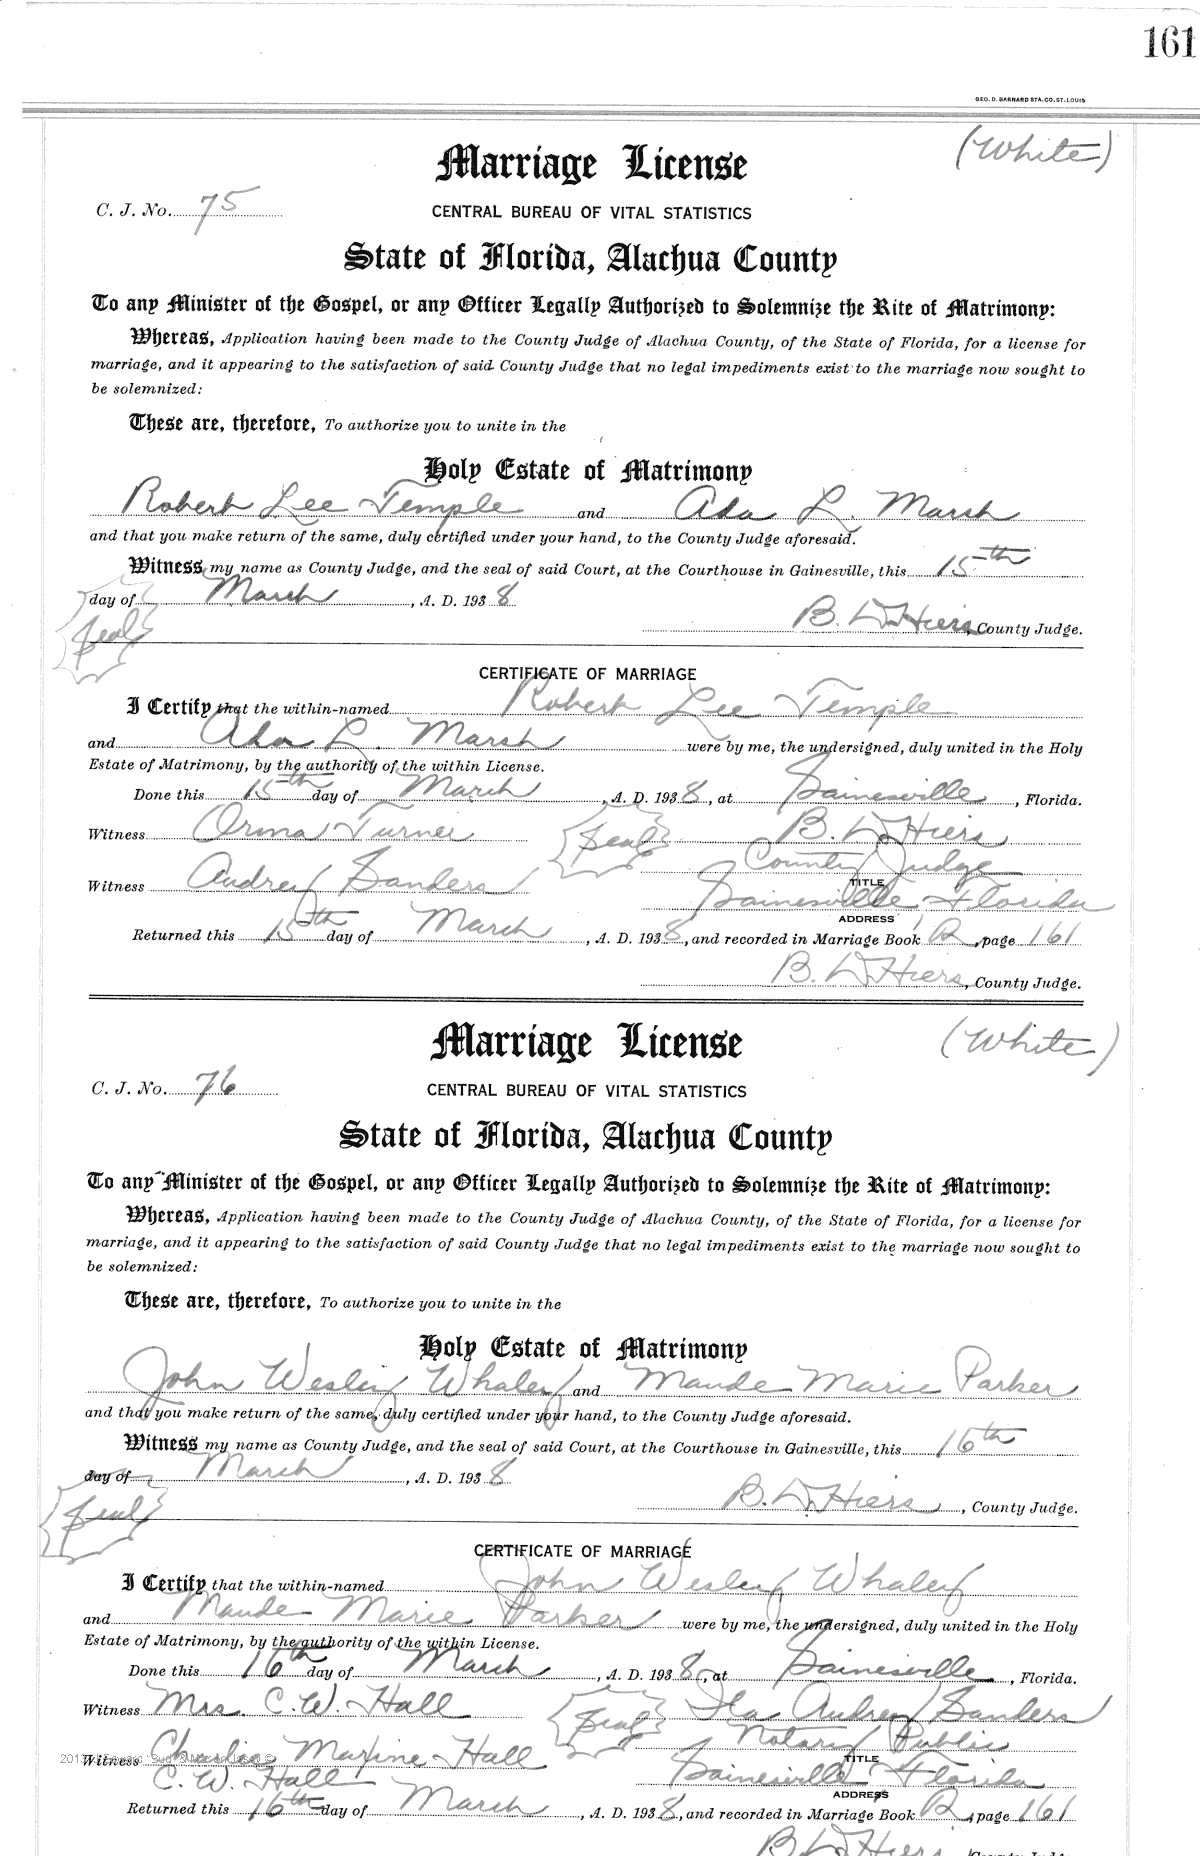 161
GEO. D. BARNARD STA. CO. ST. LOUIS
(White)
Marriage License
C. J. No. 75
CENTRAL BUREAU OF VITAL STATISTICS
State of Florida, Alachua County
To any Minister of the Gospel, or any Officer Legally Authorized to Solemnize the Rite of Matrimony:
Whereas, Application having been made to the County Judge of Alachua County, of the State of Florida, for a license for
marriage, and it appearing to the satisfaction of said County Judge that no legal impediments exist to the marriage now sought to
be solemnized:
These are, therefore, To authorize you to unite in the
Holy Estate of Matrimony
Robert Lee Temple and Ada L. Marsh
and that you make return of the same, duly certified under your hand, to the County Judge aforesaid.
Witness my name as County Judge, and the seal of said Court, at the Courthouse in Gainesville, this 15th
day of March, A. D. 1938
Seal
B. D. Hiers, County Judge.
CERTIFICATE OF MARRIAGE
I Certify that the within-named Robert Lee Temple
and Ada L. Marsh were by me, the undersigned, duly united in the Holy
Estate of Matrimony, by the authority of the within License.
Done this 15th day of March, A. D. 1938, at Gainesville, Florida.
Witness Orma Turner Seal B. D. Hiers
County Judge
Witness Audrey Sanders TITLE
Gainesville Florida
ADDRESS
Returned this 15th day of March, A. D. 1938, and recorded in Marriage Book R, page 161
B. D. Hiers, County Judge.
(White)
Marriage License
C. J. No. 76
CENTRAL BUREAU OF VITAL STATISTICS
State of Florida, Alachua County
To any Minister of the Gospel, or any Officer Legally Authorized to Solemnize the Rite of Matrimony:
Whereas, Application having been made to the County Judge of Alachua County, of the State of Florida, for a license for
marriage, and it appearing to the satisfaction of said County Judge that no legal impediments exist to the marriage now sought to
be solemnized:
These are, therefore, To authorize you to unite in the
Holy Estate of Matrimony
John Wesley Whaley and Maude Marie Parker
and that you make return of the same, duly certified under your hand, to the County Judge aforesaid.
Witness my name as County Judge, and the seal of said Court, at the Courthouse in Gainesville, this 16th
day of March, A. D. 1938
Seal
B. D. Hiers, County Judge.
CERTIFICATE OF MARRIAGE
I Certify that the within-named John Wesley Whaley
and Maude Marie Parker were by me, the undersigned, duly united in the Holy
Estate of Matrimony, by the authority of the within License.
Done this 16th day of March, A. D. 1938, at Gainesville, Florida.
Witness Mrs. C. W. Hall Seal Ila Audrey Sanders
Notary Public
Witness Charlie Maxine Hall TITLE
C. W. Hall Gainesville Florida
ADDRESS
Returned this 16th day of March, A. D. 1938, and recorded in Marriage Book R, page 161
B. D. Hiers, County Judge.